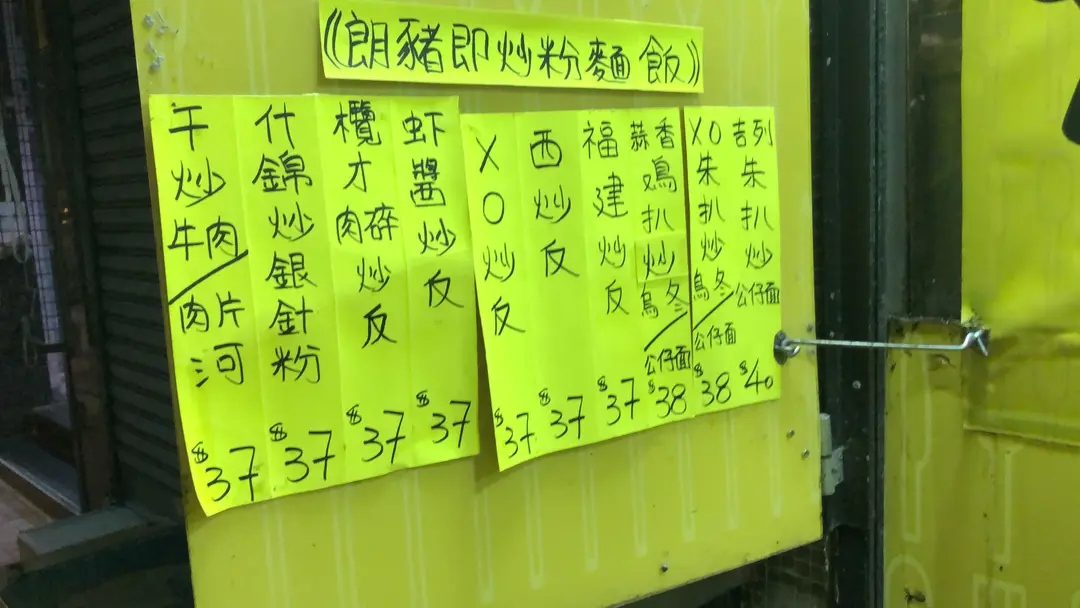 《朗豬即炒粉麵飯》
干炒牛肉/肉片河 $37
什錦炒銀針粉 $37
欖才肉碎炒反 $37
虾醬炒反 $37
XO炒反 $37
西炒反 $37
福建炒反 $37
蒜香鳮扒炒烏冬/公仔面 $38
XO朱扒炒烏冬/公仔面 $38
吉列朱扒炒公仔面 $40